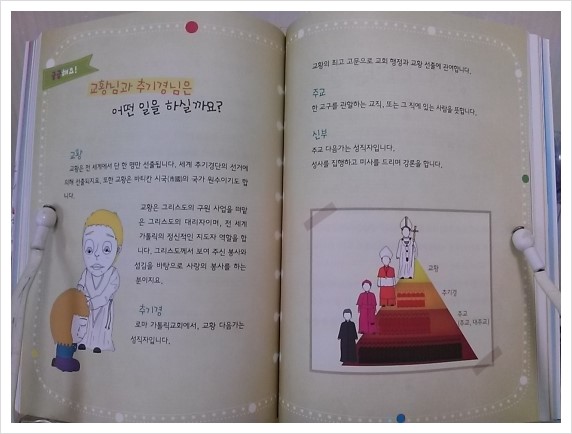 궁금해요!
교황님과 추기경님은
어떤 일을 하실까요?
교황
교황은 전 세계에서 단 한 명만 선출됩니다. 세계 추기경단의 선거에
의해 선출되지요. 또한 교황은 바티칸 시국(市國)의 국가 원수이기도 합
니다.
교황은 그리스도의 구원 사업을 떠맡
은 그리스도의 대리자이며, 전 세계
가톨릭의 정신적인 지도자 역할을 합
니다. 그리스도께서 보여 주신 봉사와
섬김을 바탕으로 사랑의 봉사를 하는
분이지요.
추기경
로마 가톨릭교회에서, 교황 다음가는
성직자입니다.
교황의 최고 고문으로 교회 행정과 교황 선출에 관여합니다.
주교
한 교구를 관할하는 교직, 또는 그 직에 있는 사람을 뜻합니다.
신부
주교 다음가는 성직자입니다.
성사를 집행하고 미사를 드리며 강론을 합니다.
교황
추기경
주교
(주교, 대주교)